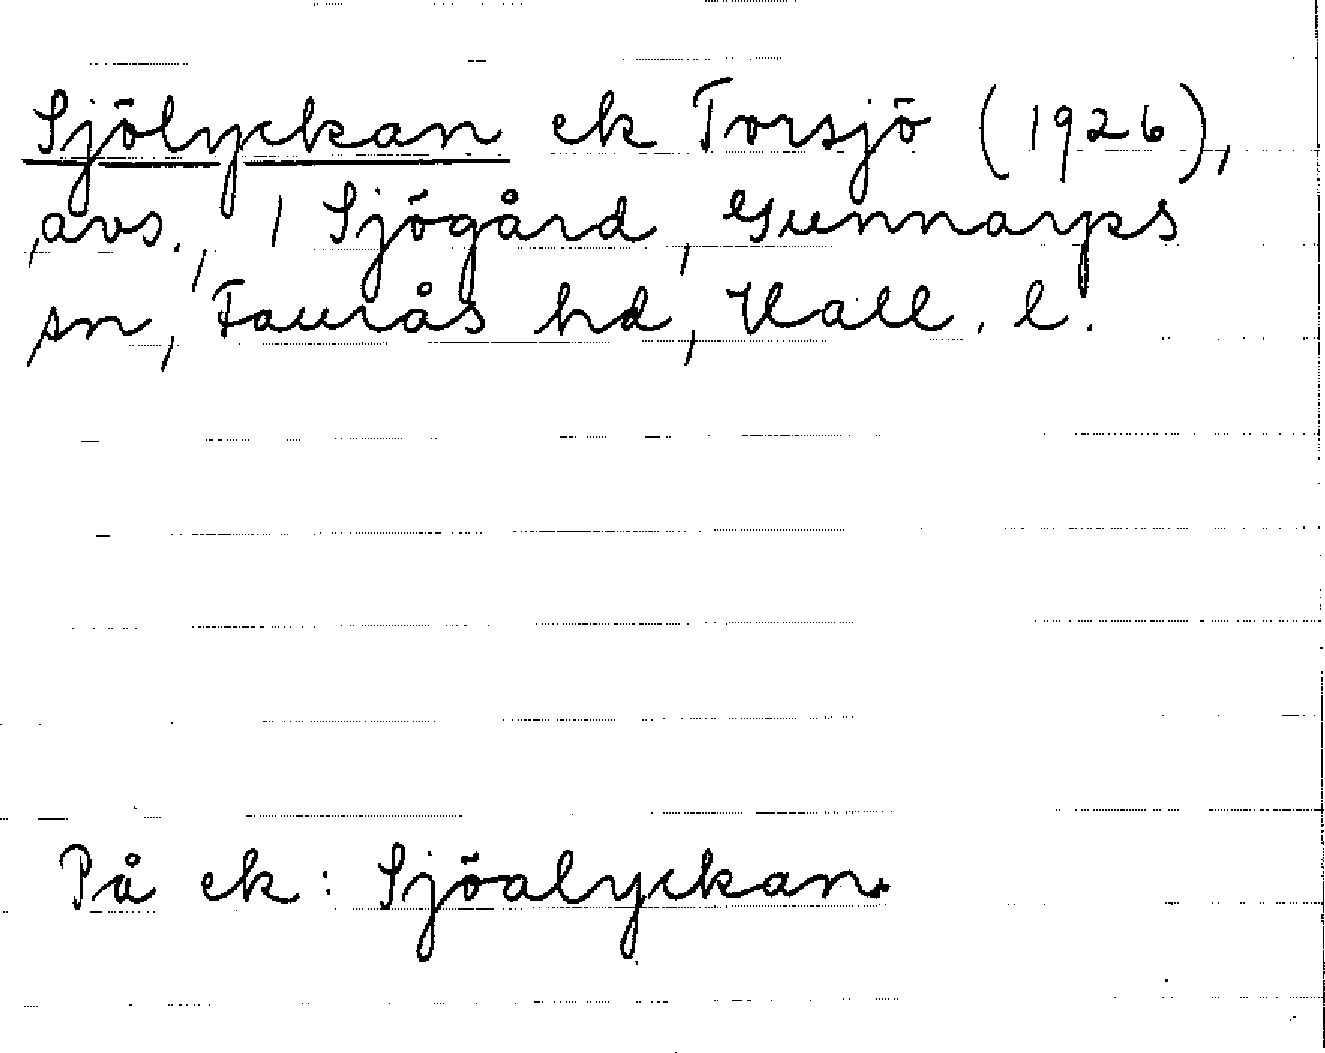 Sjölyckan ek Torsjö (1926),
avs., 1 Sjögård, Gunnarps
sn, Faurås hd, Hall. l.
På ek: Sjöalyckan.